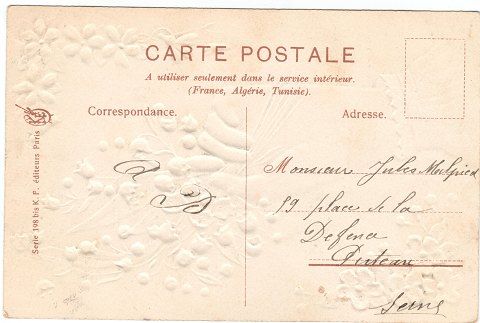 CARTE POSTALE
A utiliser seulement dans le service intérieur.
(France, Algérie, Tunisie).
Correspondance.
Adresse.
Serie 198 bis K. F. éditeurs Paris
Monsieur Jules
19 place de la
Defence
Puteau
Seine